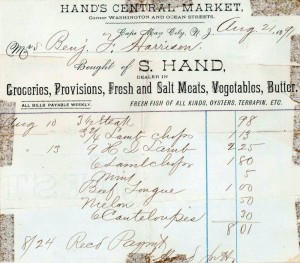 HAND'S CENTRAL MARKET,
Corner WASHINGTON AND OCEAN STREETS.
Cape May City, N. J. Aug 21 189
Mrs Benj. F. Harrison
Bought of S. HAND,
DEALER IN
Groceries, Provisions, Fresh and Salt Meats, Vegetables, Butter.
ALL BILLS PAYABLE WEEKLY. FRESH FISH OF ALL KINDS, OYSTERS, TERRAPIN, ETC.
Aug 10 Steak 98
Lamb Chops 1 13
13 H Q Lamb 2 25
6 Lamb chops 1 80
Mint 5
Beef Tongue 1 00
Melon 50
6 Canteloupes 30
8 01
8/24 Recd Paymt
S Hand